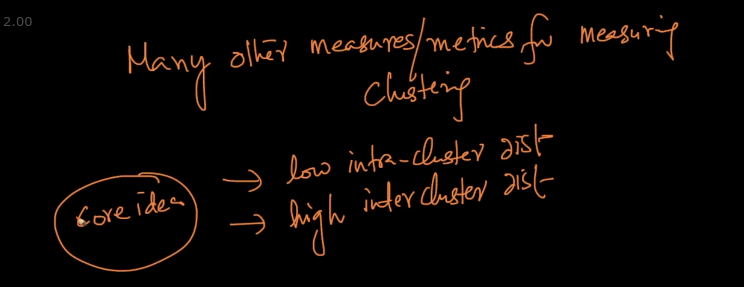 2.00
Many other measures/metrics for measuring
Clustering
core idea
→ low intra-cluster dist
→ high inter cluster dist